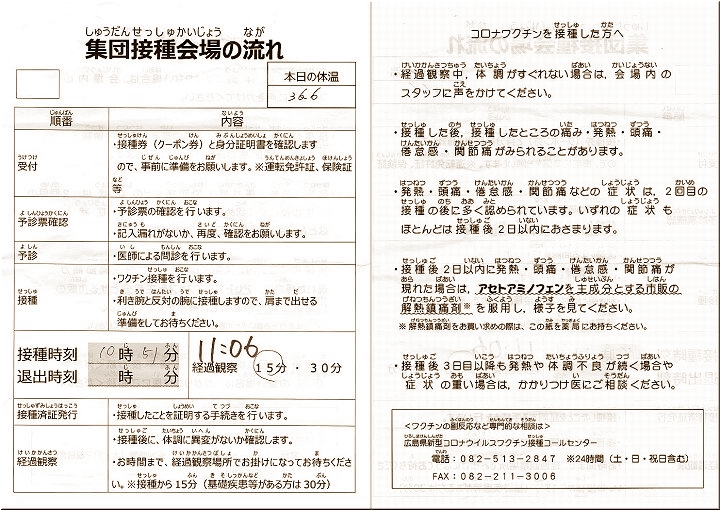 集団接種会場の流れ
本日の体温
36.6
順番 内容
受付
・接種券（クーポン券）と身分証明書を確認します
ので、事前に準備をお願いします。※運転免許証、保険証
等
予診票確認
・予診票の確認を行います。
・記入漏れがないか、再度、確認をお願いします。
予診 ・医師による問診を行います。
接種
・ワクチン接種を行います。
・利き腕と反対の腕に接種しますので、肩まで出せる
準備をしてお待ちください。
接種時刻 10時51分
退出時刻 時 分
11:06
経過観察 15分・30分
接種済証発行 ・接種したことを証明する手続きを行います。
経過観察
・接種後に、体調に異変がないか確認します。
・お時間まで、経過観察場所でお掛けになってお待ちくださ
い。※接種から15分（基礎疾患等がある方は30分）
コロナワクチンを接種した方へ
・経過観察中，体調がすぐれない場合は，会場内の
スタッフに声をかけてください。
・接種した後，接種したところの痛み・発熱・頭痛・
倦怠感・関節痛がみられることがあります。
・発熱・頭痛・倦怠感・関節痛などの症状は，2回目の
接種の後に多く認められています。いずれの症状も
ほとんどは接種後2日以内におさまります。
・接種後2日以内に発熱・頭痛・倦怠感・関節痛が
現れた場合は，アセトアミノフェンを主成分とする市販の
解熱鎮痛剤※を服用し，様子を見てください。
※解熱鎮痛剤をお買い求めの際は、この紙を薬局にお持ちください。
・接種後3日目以降も発熱や体調不良が続く場合や
症状の重い場合は，かかりつけ医にご相談ください。
＜ワクチンの副反応など専門的な相談は＞
広島県新型コロナウイルスワクチン接種コールセンター
電話：082-513-2847 ※24時間（土・日・祝日含む）
FAX：082-211-3006